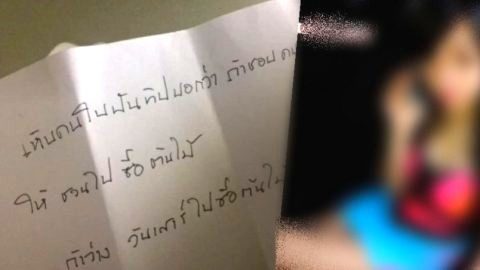 เห็นคนในพันทิปบอกว่า ถ้าชอบ คน
ให้ ชวนไป ซื้อ ต้นไม้
ถ้าว่าง วันเสาร์ ไปซื้อต้นไม้